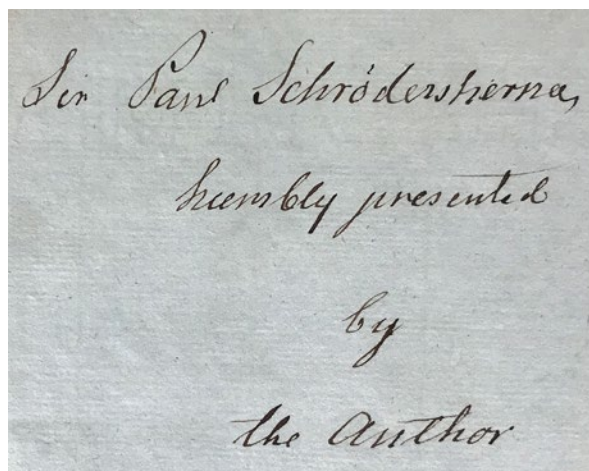 Sir Paul Schröderheim,
humbly presented
by
the Author